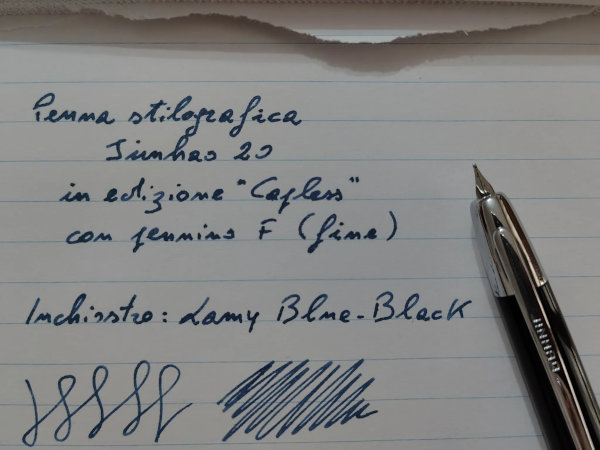 Penna stilografica
Jinhao 20
in edizione "Capless"
con pennino F (fine)
Inchiostro: Lamy Blue-Black